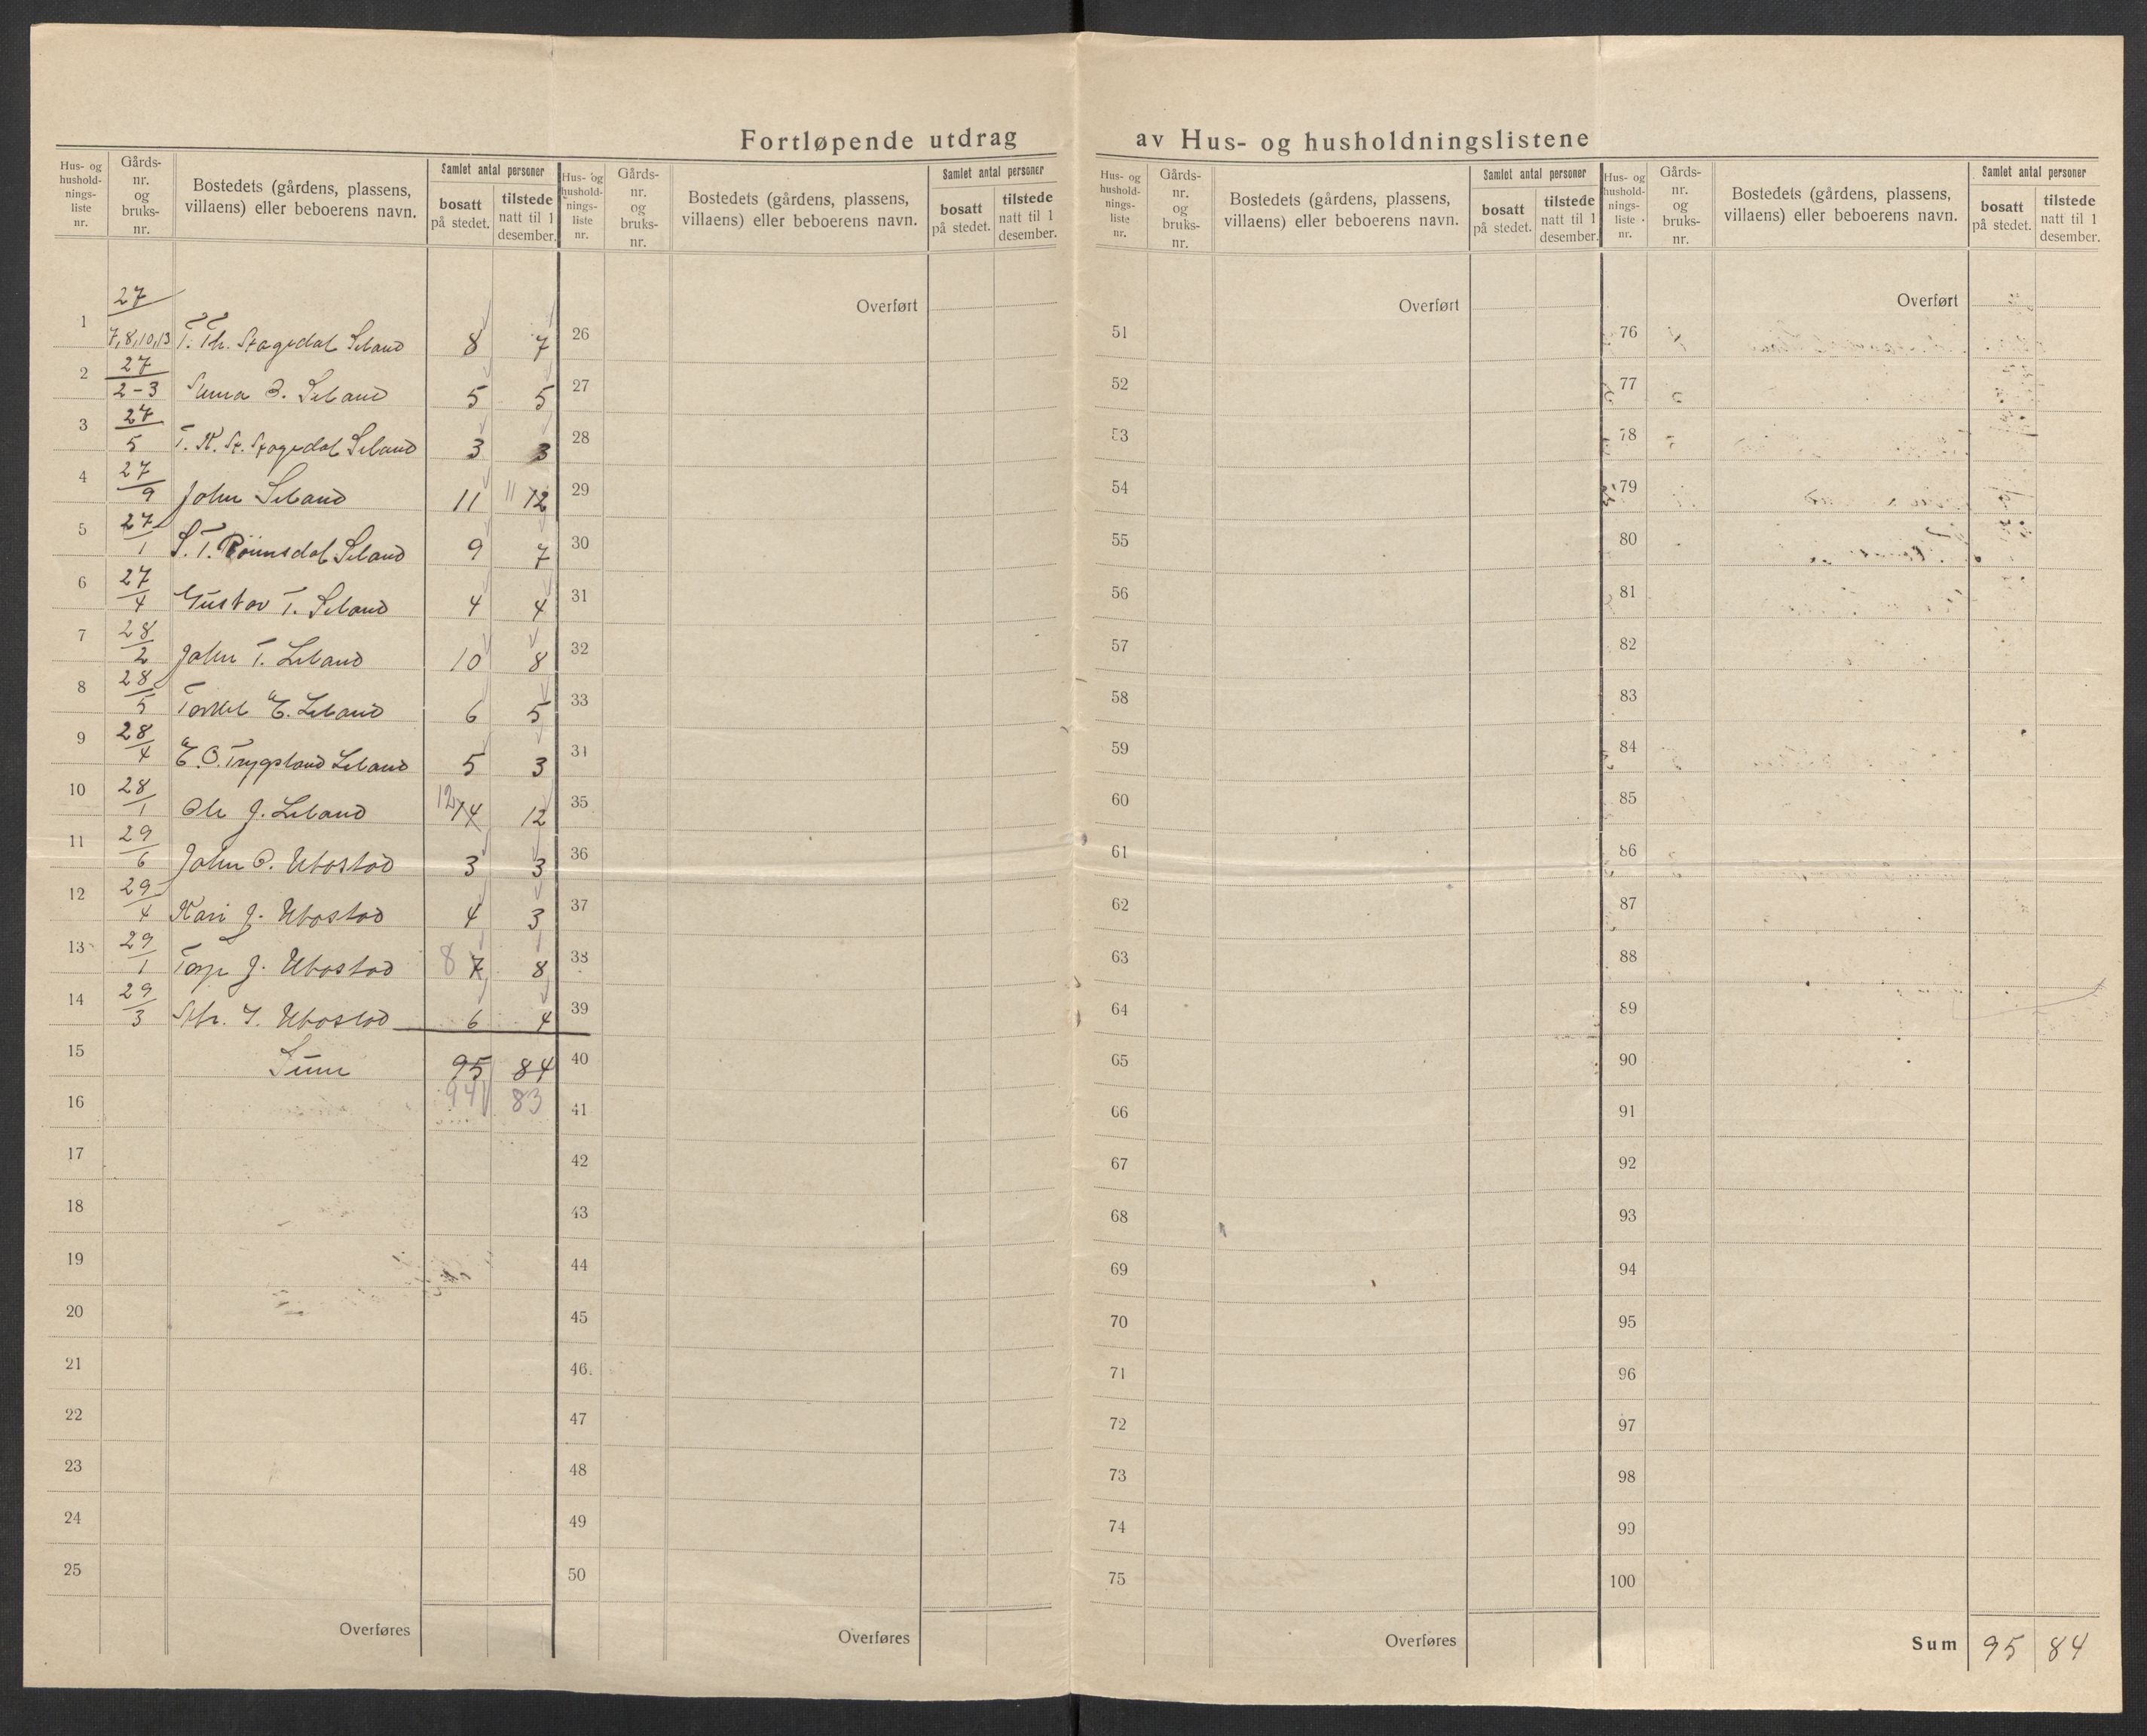 Fortløpende utdrag av Hus- og husholdningslistene
Hus- og husholdnings-liste nr. Gårds-nr. og bruks-nr. Bostedets (gårdens, plassens, villaens) eller beboerens navn. Samlet antal personer bosatt på stedet. tilstede natt til 1 desember.
Hus- og husholdnings-liste nr. Gårds-nr. og bruks-nr. Bostedets (gårdens, plassens, villaens) eller beboerens navn. Samlet antal personer bosatt på stedet. tilstede natt til 1 desember.
Hus- og husholdnings-liste nr. Gårds-nr. og bruks-nr. Bostedets (gårdens, plassens, villaens) eller beboerens navn. Samlet antal personer bosatt på stedet. tilstede natt til 1 desember.
Hus- og husholdnings-liste nr. Gårds-nr. og bruks-nr. Bostedets (gårdens, plassens, villaens) eller beboerens navn. Samlet antal personer bosatt på stedet. tilstede natt til 1 desember.
1 27/7,8,10,13 T. Th. Stagedal Seland 8 7
2 27/2-3 Seland 5 5
3 27/5 T. K. St. Stagedal Seland 3 3
4 27/9 John Seland 11 11 12
5 27/1 S. T. Röinsdal Seland 9 7
6 27/4 Gustav T. Seland 4 4
7 28/2 John T. Leland 10 8
8 28/5 Torkel E. Leland 6 5
9 28/4 E. O. Trygsland Leland 5 3
10 28/1 Ole J. Leland 12 14 12
11 29/6 John O. Ubostad 3 3
12 29/4 Kari J. Ubostad 4 3
13 29/1 Torje J. Ubostad 8 7 8
14 29/3 Ubostad 6 4
15 Sum 95 84
16 94 83
17
18
19
20
21
22
23
24
25
Overføres
Overført
26
27
28
29
30
31
32
33
34
35
36
37
38
39
40
41
42
43
44
45
46
47
48
49
50
Overføres
Overført
51
52
53
54
55
56
57
58
59
60
61
62
63
64
65
66
67
68
69
70
71
72
73
74
75
Overføres
Overført
76
77
78
79
80
81
82
83
84
85
86
87
88
89
90
91
92
93
94
95
96
97
98
99
100
Sum 95 84